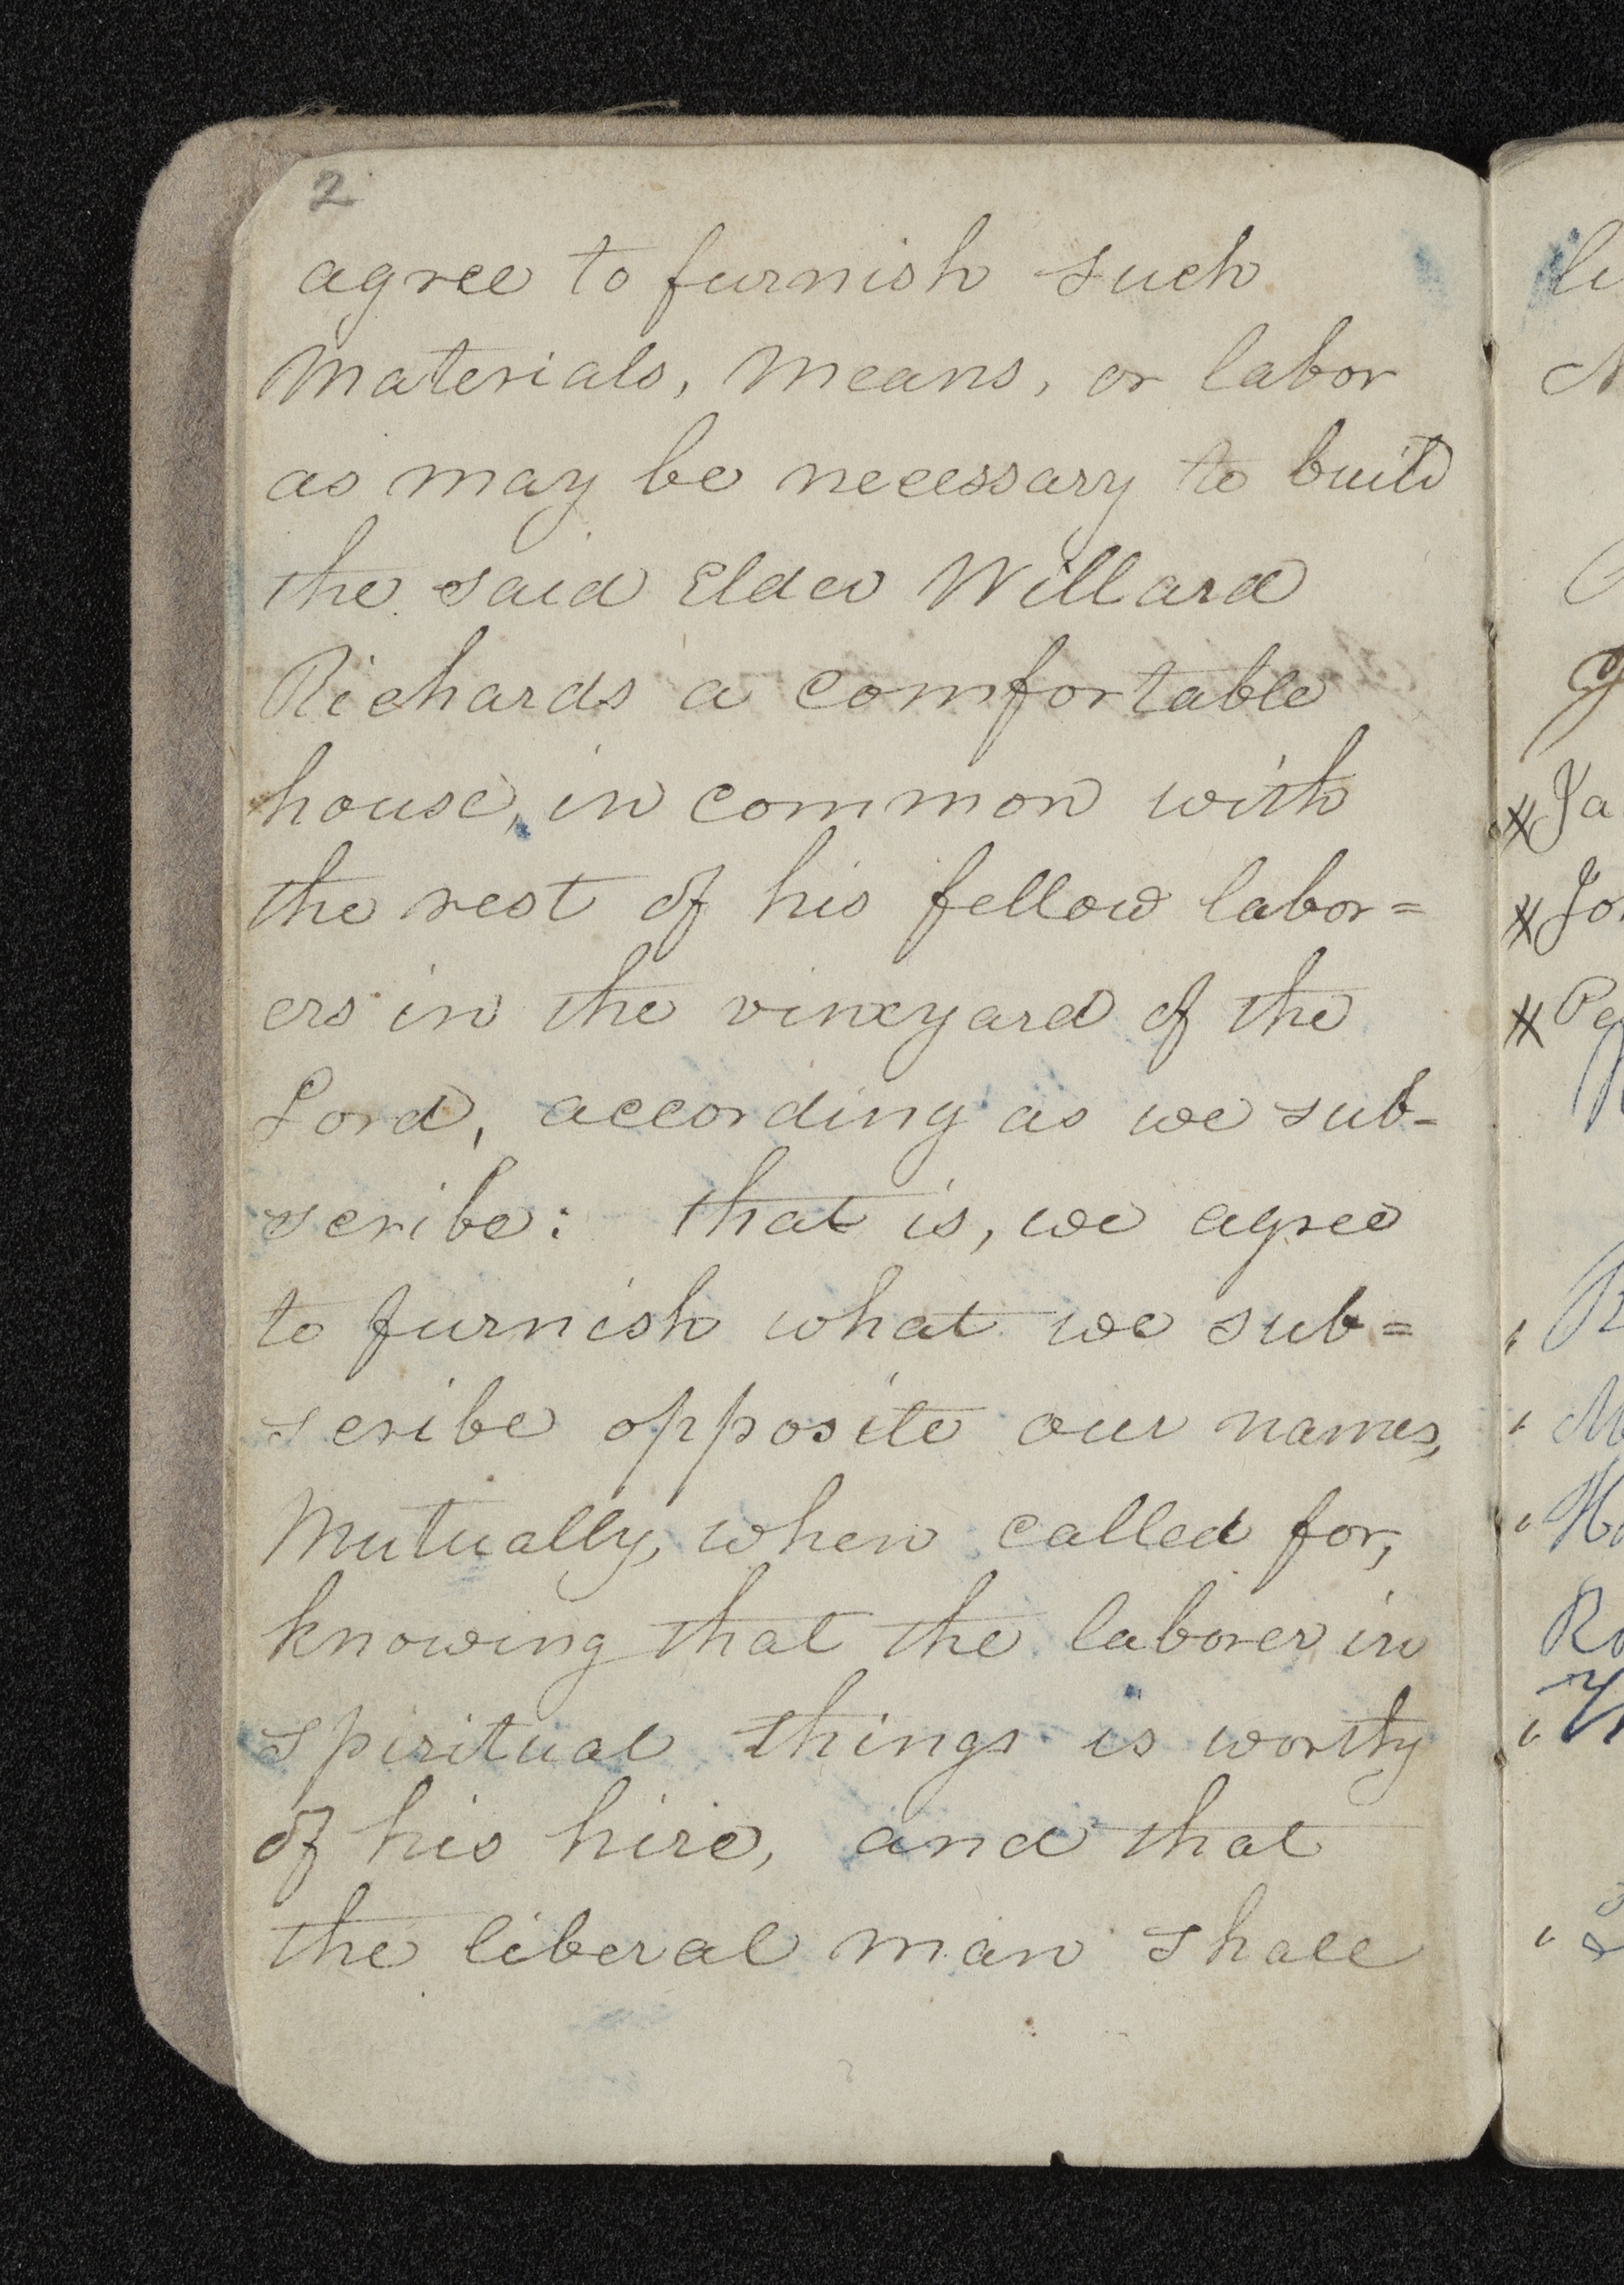 2
agree to furnish such
Materials, Means, or labor
as may be necessary to build
the said Elder Willard
Richards a comfortable
house, in common with
the rest of his fellow labor=
ers in the vineyard of the
Lord, according as we sub-
scribe: that is, we agree
to furnish what we sub=
scribe opposite our names,
Mutually, when called for,
knowing that the laborer in
spiritual things is worthy
of his hire, and that
the liberal man shall